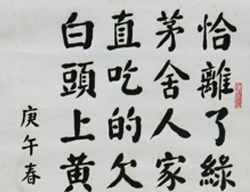 恰離了綠
茅舍人家
直吃的欠
白頭上黃
庚午春